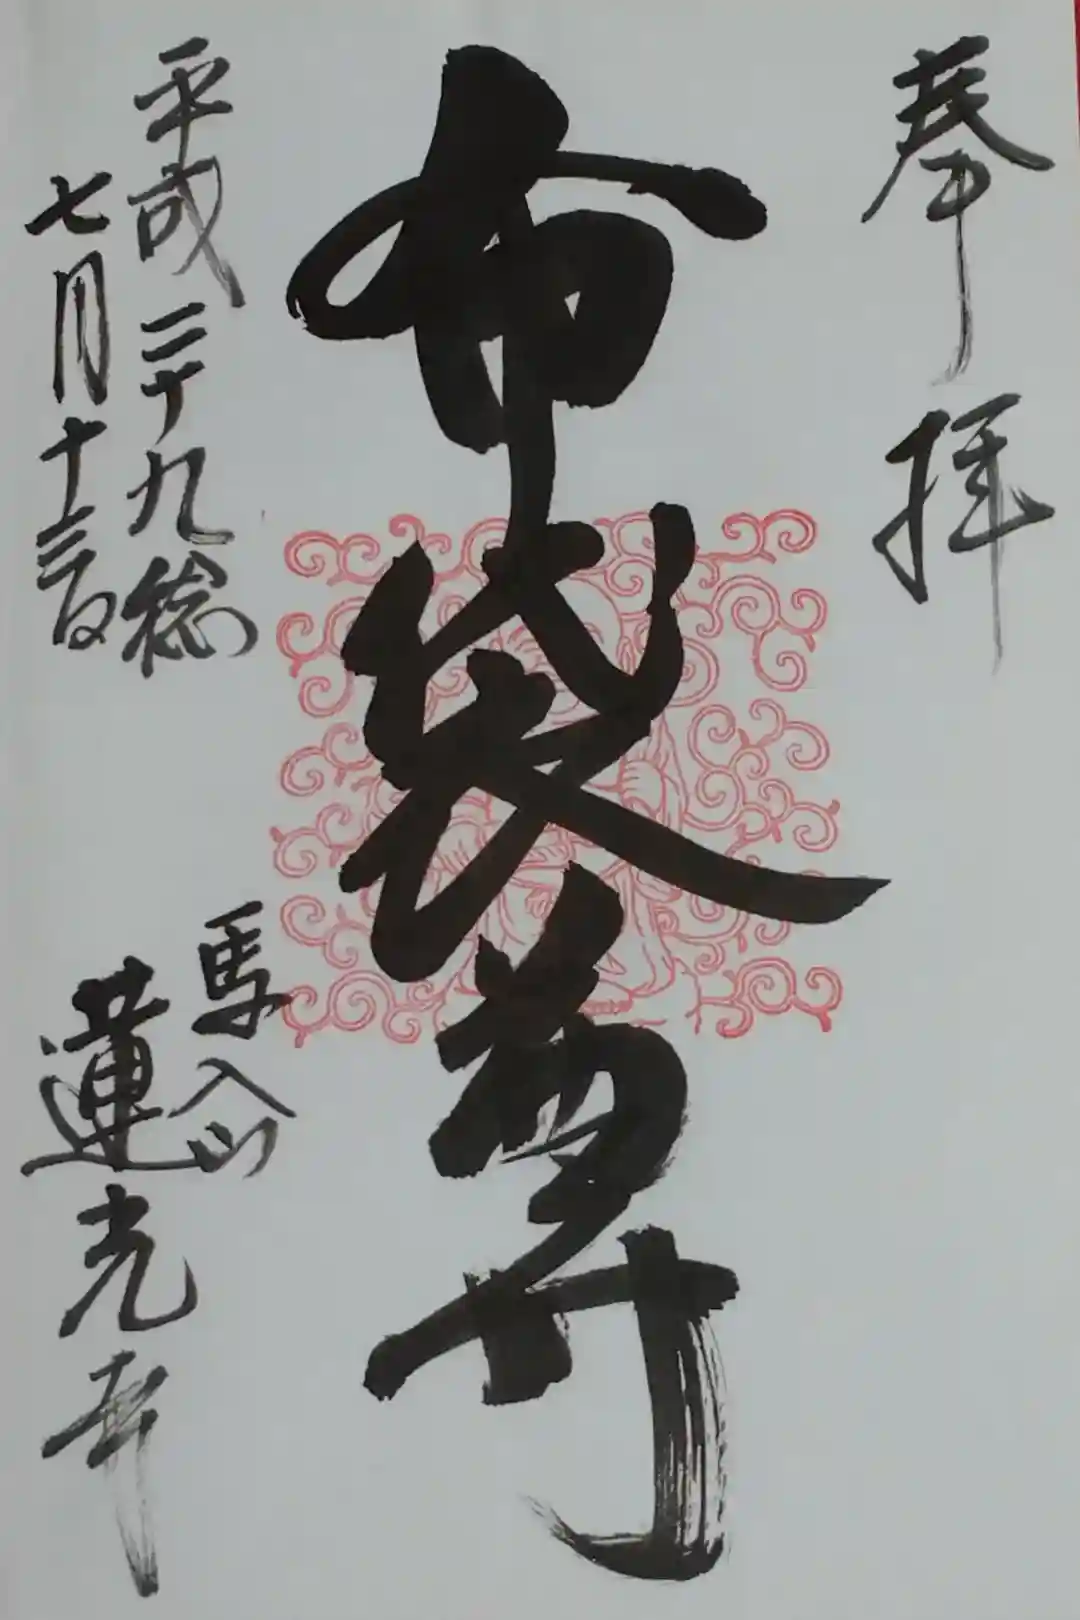 奉拝
布袋尊
平成二十九稔
七月十三日
馬込
蓮光寺